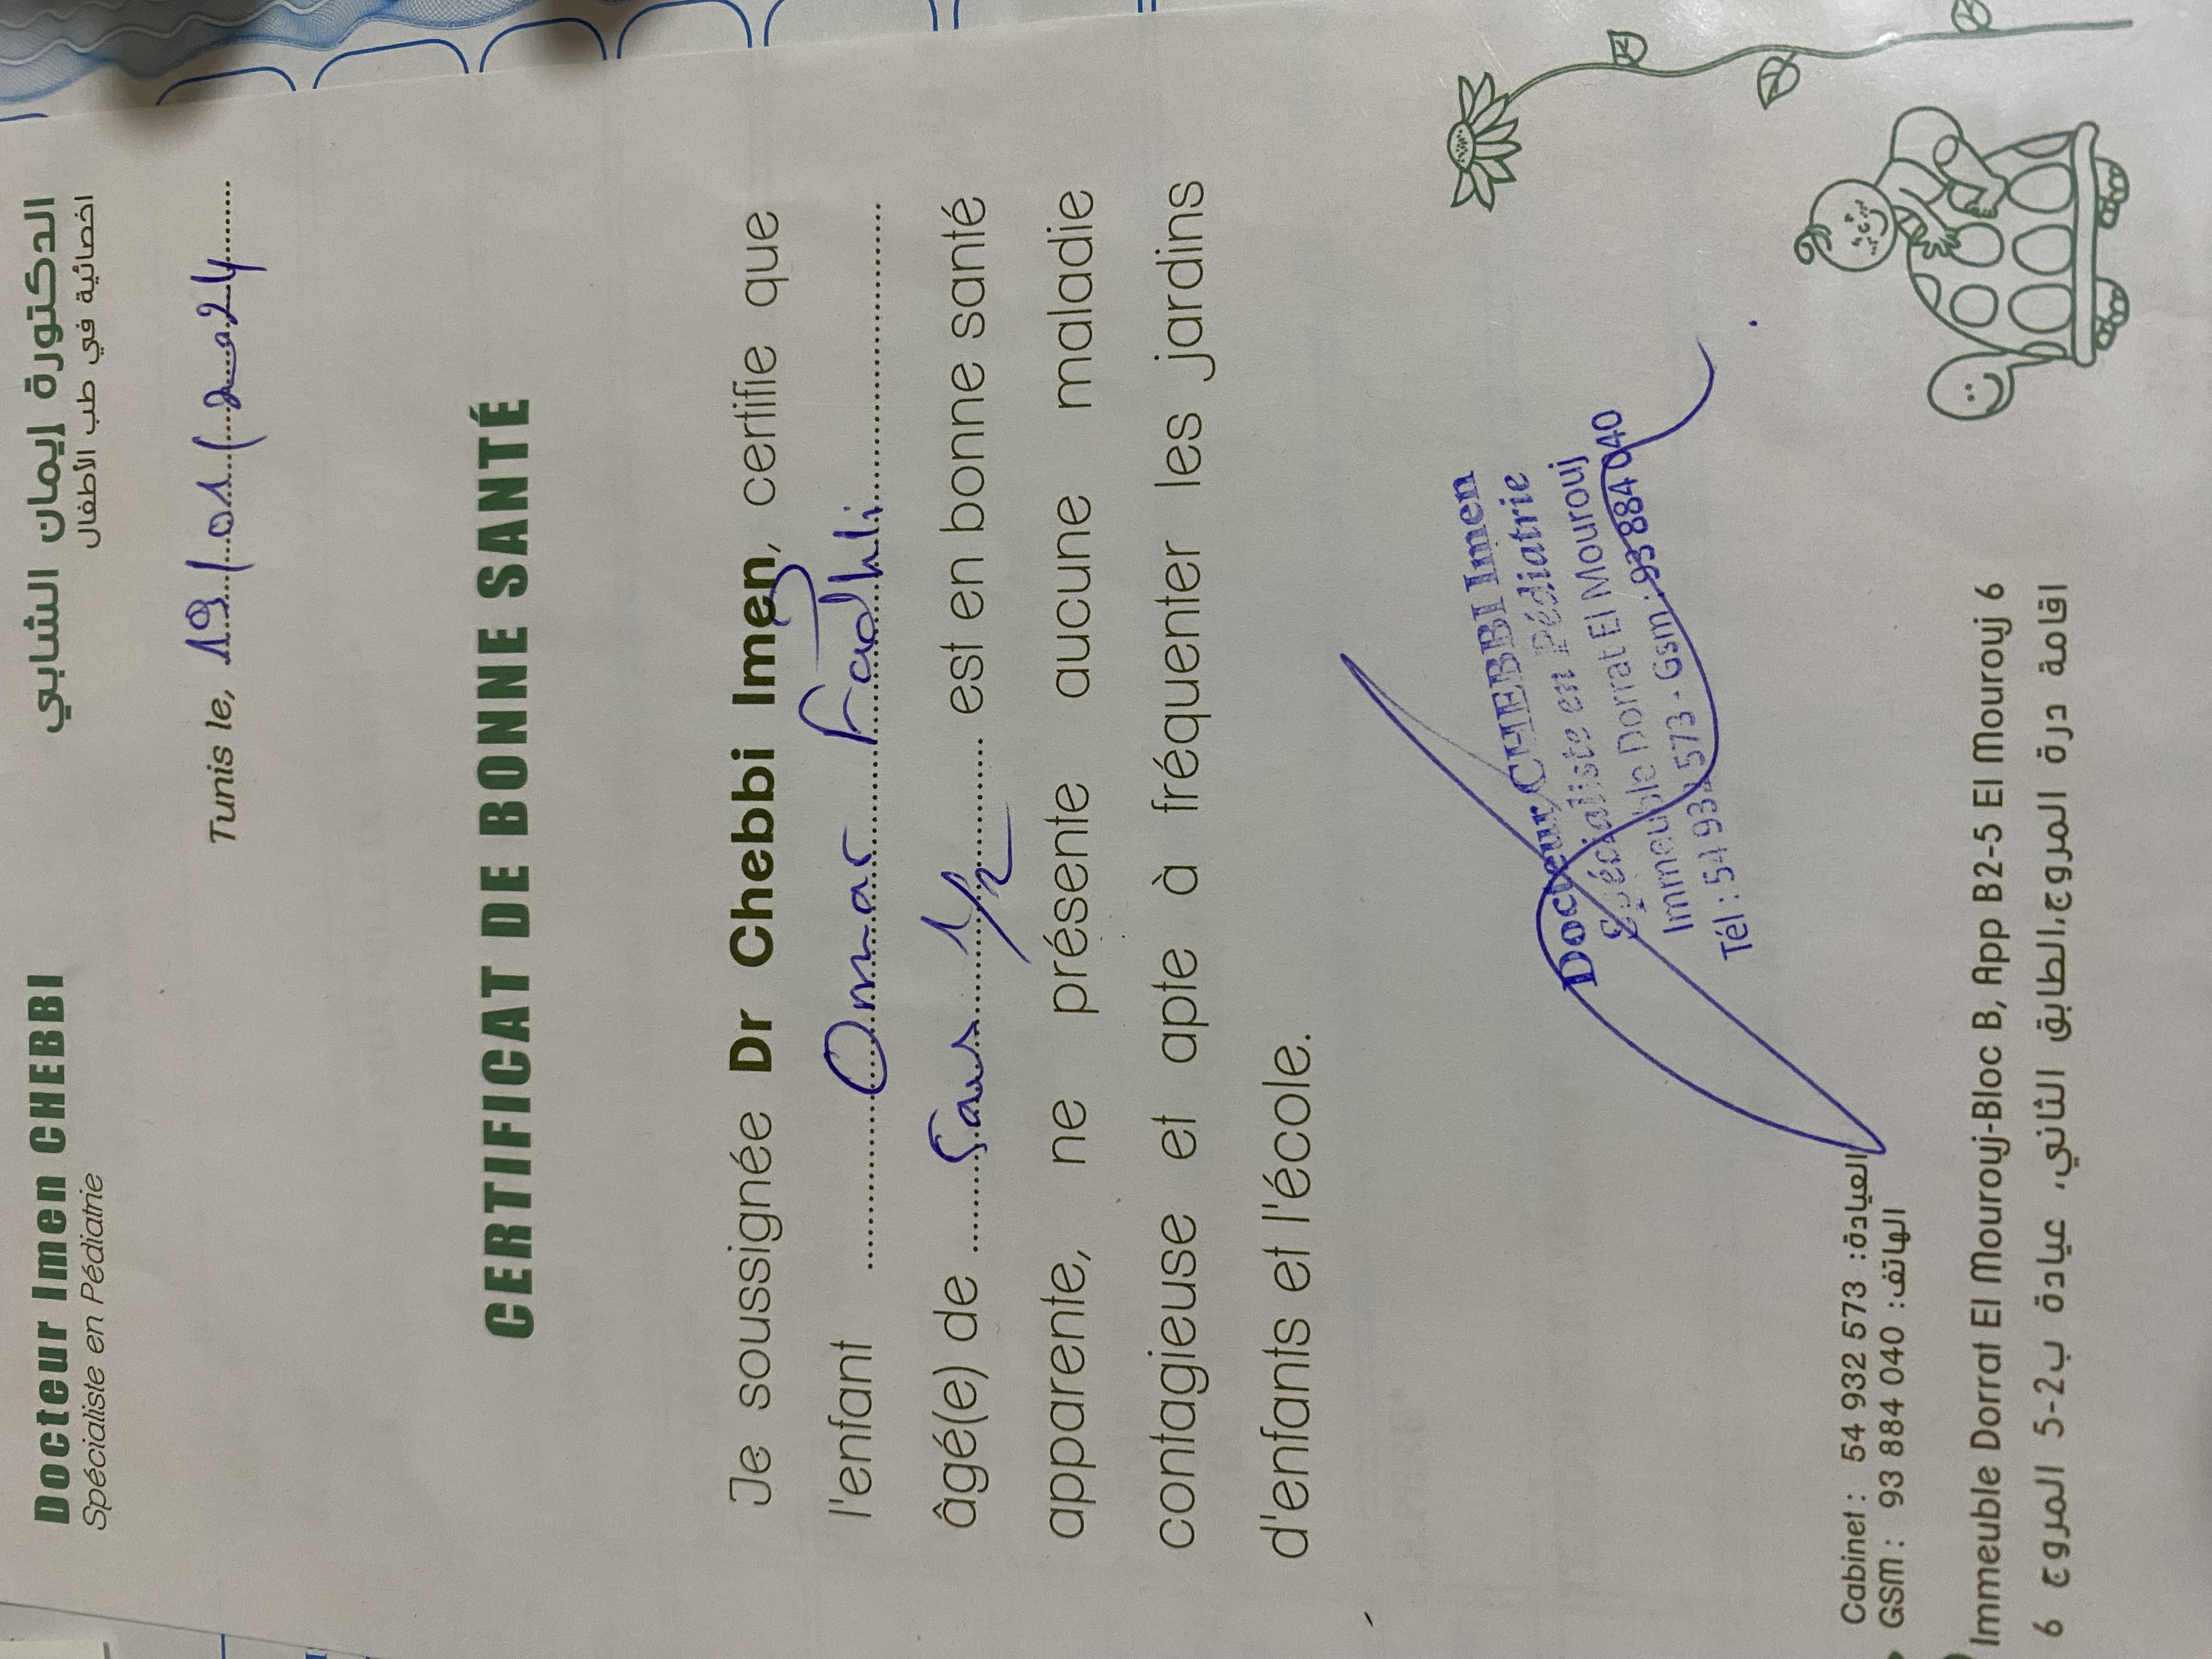 Docteur Imen CHEBBI
Spécialiste en Pédiatrie
الدكتورة إيمان الشابي
اخصائية في طب الأطفال
Tunis le, 19/01/2024
CERTIFICAT DE BONNE SANTÉ
Je soussignée Dr Chebbi Imen, certifie que
l'enfant Omar Fadhli
âgé(e) de 5ans 1/2 est en bonne santé
apparente, ne présente aucune maladie
contagieuse et apte à fréquenter les jardins
d'enfants et l'école.
Docteur CHEBBI Imen
Spécialiste en Pédiatrie
Immeuble Dorrat El Mourouj
Tél : 54 932 573 - Gsm : 93 884 040
Cabinet : 54 932 573 :العيادة
GSM : 93 884 040 :الهاتف
Immeuble Dorrat El Mourouj-Bloc B, App B2-5 El Mourouj 6
اقامة درة المروج،الطابق الثاني، عيادة ب2-5 المروج 6